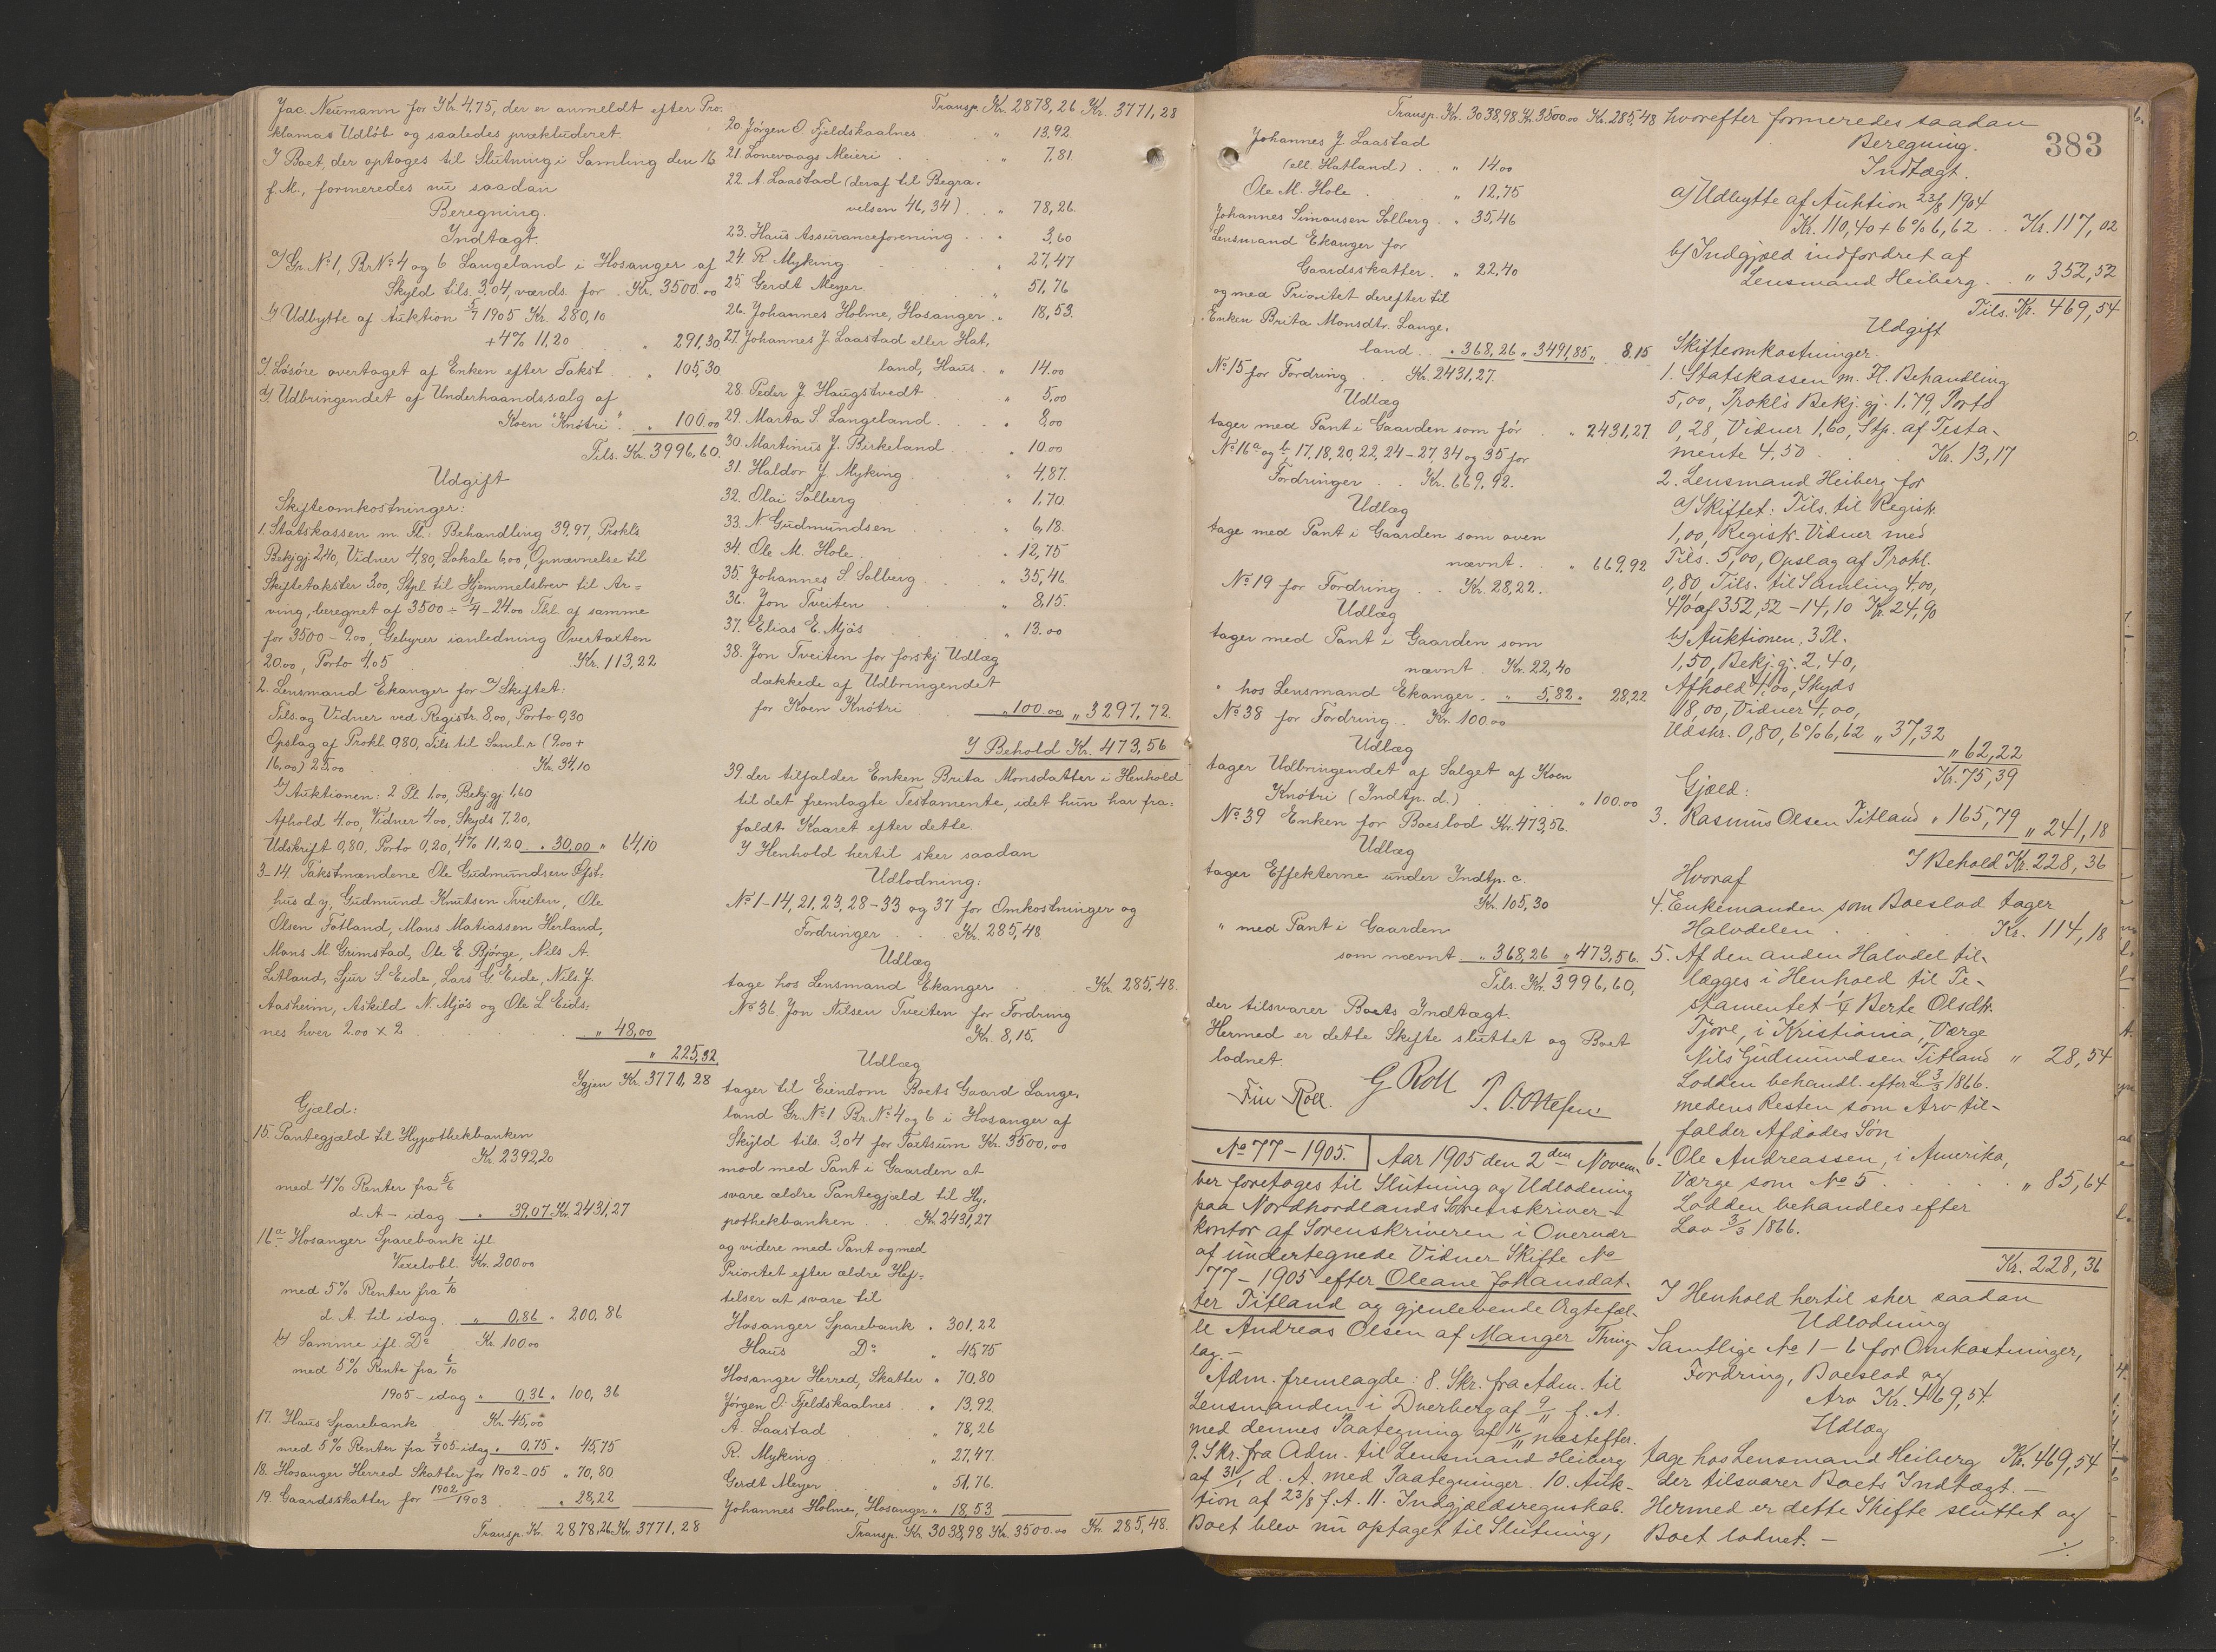 Jac. Neumann for Kr. 4,75, der er anmeldt efter Pro-
klamas Udløb og saaledes prækluderet.
I Boet, der optoges til Slutning i Samling den 16
f. M., formeredes nu saadan
Beregning.
Indtægt.
a) Gr. No 1, Br No 4 og 6 Langeland i Hosanger af
Skyld tils. 3,04, værds. for Kr. 3500.00
b) Udbytte af Auktion 5/7 1905 Kr. 280,10
+4% 11,20 " 291,30
c) Løsøre overtaget af Enken efter Takst " 105,30
d) Udbringendet af Underhaandssalg af
Koen "Knøtri" " 100.00
Tils. Kr. 3996,60.
Udgift
Skifteomkostninger:
1. Statskassen m. Fl.: Behandling 39,97, Prokl's
Bekjgj. 2,40, Vidner 4,80, Lokale 6,00, Opnævnelse til
Skiftetakster 3,00, Stpl. til Hjemmelsbrev til Ar-
ving, beregnet af 3500 ÷ 1/4 - 24.00 Thl. af samme
for 3500 - 9.00, Gebyrer ianledning Overtaxten
20.00, Porto 4,05 Kr. 113,22
2. Lensmand Ekanger for a) Skiftet:
Tils. og Vidner ved Registr. 8,00, Porto 0,30
Opslag af Prokl. 0,80, Tils. til Saml.r (9.00 +
16,00) 25.00 Kr. 34,10
b) Auktionen: 2 Pl. 1.00, Bekjgj. 1,60
Afhold 4.00, Vidner 4.00, Skyds 7,20,
Udskrift 0,80, Porto 0,20, 4% 11,20 " 30,00 " 64,10
3-14. Takstmændene Ole Gudmundsen Øfst-
hus d.y., Gudmund Knutsen Tveiten, Ole
Olsen Fotland, Mons Matiassen Herland,
Mons M. Grimstad, Ole E. Bjørge, Nils A.
Litland, Sjur S. Eide, Lars G. Eide, Nils J.
Aasheim, Askild N. Mjøs og Ole L. Eids-
nes hver 2.00 x 2 " 48,00
" 225,32
Igjen Kr. 3771,28
Gjæld:
15. Pantegjæld til Hypothekbanken
Kr. 2392,20
med 4% Renter fra 5/6
d. A - idag " 39,07 Kr. 2431,27
16 a. Hosanger Sparebank ifl.
Vexelobl. Kr. 200.00
med 5% Renter fra 1/10
d. A. til idag " 0,86 " 200,86
b) Samme ifl. Do Kr. 100.00
med 5% Rente fra 6/10
1905 - idag " 0,36 " 100,36
17. Haus Sparebank Kr. 45,00
med 5% Renter fra 2/7 05 - idag " 0,75 " 45,75
18. Hosanger Herred Skatter for 1902-05 " 70,80
19. Gaardsskatter for 1902/1903 " 28,22
Transp. Kr. 2878,26 Kr. 3771,28
Transp. Kr. 2878,26 Kr. 3771,28
20. Jørgen O. Fjeldskaalnes " 13,92.
21. Lonevaags Meieri " 7,81.
22. A. Laastad (deraf til Begra-
velsen 46,34) " 78,26.
23. Haus Assuranceforening " 3,60
24. R. Myking " 27,47
25. Gerdt Meyer " 51,76
26. Johannes Holme, Hosanger " 18,53.
27. Johannes J. Laastad eller Hat-
land, Haus " 14.00
28. Peder J. Haugstvedt " 5,00
29. Marta S. Langeland " 8,00
30. Martinus J. Birkeland " 10.00
31. Haldor J. Myking " 4,87.
32. Olai Solberg " 1,70.
33. N. Gudmundsen " 6,18.
34. Ole M. Hole " 12,75
35. Johannes S. Solberg " 35,46
36. Jon Tveiten " 8,15.
37. Elias E. Mjøs " 13.00
38. Jon Tveiten for forskj. Udlæg
dækkede af Udbringendet
for Koen Knøtri " 100.00 " 3297,72.
I Behold Kr. 473,56
39. der tilfalder Enken Brita Monsdatter i Henhold
til det fremlagte Testamente, idet hun har fra-
faldt Kaaret efter dette.
I Henhold hertil sker saadan
Udlodning:
No 1-14, 21, 23, 28-33 og 37 for Omkostninger og
Fordringer Kr. 285,48
Udlæg
tage hos Lensmand Ekanger Kr. 285,48.
No 36 Jon Nilsen Tveiten for Fordring
Kr. 8,15.
Udlæg
tager til Eiendom Boets Gaard Lange-
land Gr. No 1 Br. No 4 og 6 i Hosanger af
Skyld tils. 3,04 for Taxtsum Kr. 3500,00
mod med Pant i Gaarden at
svare ældre Pantegjæld til Hy-
pothekbanken Kr. 2431,27
og videre med Pant og med
Prioritet efter ældre Hef-
telser at svare til
Hosanger Sparebank " 301,22
Haus Do " 45,75
Hosanger Herred, Skatter " 70,80
Jørgen O. Fjeldskaalnes " 13,92.
A. Laastad " 78,26
R. Myking " 27,47.
Gerdt Meyer " 51,76.
Johannes Holme, Hosanger " 18,53
Transp. Kr. 3038,98 Kr. 3500.00 Kr. 285,48.
Transp. Kr. 3038,98 Kr. 3500.00 Kr. 285,48
Johannes J. Laastad
(ell. Hatland) " 14.00
Ole M. Hole " 12,75
Johannes Simonsen Solberg " 35,46
Lensmand Ekanger for
Gaardsskatter " 22,40
og med Prioritet derefter til
Enken Brita Monsdtr. Lange-
land " 368,26 " 3491,85 " 8.15
No 15 for Fordring Kr. 2431,27.
Udlæg
tager med Pant i Gaarden som før " 2431,27
No 16 a og b, 17, 18, 20, 22, 24-27, 34 og 35 for
Fordringer Kr. 669,92.
Udlæg
tage med Pant i Gaarden som oven
nævnt " 669,92
No 19 for Fordring Kr. 28,22.
Udlæg
tager med Pant i Gaarden som
nævnt Kr. 22,40
" hos Lensmand Ekanger " 5,82 " 28,22
No 38 for Fordring Kr. 100.00
Udlæg
tager Udbringendet af Salget af Koen
Knøtri (Indtp. d.) " 100.00
No 39 Enken for Boeslod Kr. 473,56.
Udlæg
tager Effekterne under Indtp. c.
Kr. 105,30
" med Pant i Gaarden
som nævnt " 368,26 " 473,56.
Tils. Kr. 3996,60,
der tilsvarer Boets Indtægt.
Hermed er dette Skifte sluttet og Boet
lodnet.
Fin Roll. G Roll P. O. Ottesen
No 77 - 1905. Aar 1905 den 2den Novem-
ber foretoges til Slutning og Udlodning
paa Nordhordlands Sorenskriver-
kontor af Sorenskriveren i Overvær
af undertegnede Vidner Skifte No
77 - 1905 efter Oleane Johansdat-
ter Titland og gjenlevende Ægtefæl-
le Andreas Olsen af Manger Thing-
lag.-
Adm. fremlagde: 8. Skr. fra Adm. til
Lensmanden i Dverberg af 9/11 f. A.
med dennes Paategning af 16/11 næstefter.
9. Skr. fra Adm. til Lensmand Heiberg
af 31/1 d. A. med Paategninger. 10. Auk-
tion af 23/8 f. A. 11. Indgjældsregnskab.
Boet blev nu optaget til Slutning,
hvorefter formeredes saadan
383
Beregning.
Indtægt.
a) Udbytte af Auktion 23/8 1904
Kr. 110,40 + 6% 6,62 Kr. 117,02
b) Indgjæld indfordret af
Lensmand Heiberg " 352,52
Tils. Kr. 469,54
Udgift
Skifteomkostninger.
1. Statskassen m. Fl. Behandling
5,00, Prokl's Bekj. gj. 1.79, Porto
0,28, Vidner 1,60, Stp. af Testa-
mente 4,50 Kr. 13,17
2. Lensmand Heiberg for
a) Skiftet: Tils. til Registr.
1,00, Registr. Vidner med
Tils. 5,00, Opslag af Prokl.
0,80, Tils. til Samling 4,00,
4% af 352,52 - 14,10 Kr. 24,90
b) Auktionen, 3 Pl.
1,50, Bekj. gj. 2,40,
Afhold 4,00, Skyds
18,00, Vidner 4,00,
Udskr. 0,80, 6% 6,62 " 37,32
" 62,22
Kr. 75,39
Gjæld:
3. Rasmus Olsen Titland " 165,79 " 241,18
I Behold Kr. 228,36
Hvoraf
4. Enkemanden som Boeslod tager
Halvdelen Kr. 114,18
5. Af den anden Halvdel til-
lægges i Henhold til Te-
stamentet 1/4 Berte Olsdtr.
Tjore, i Kristiania, Værge
Nils Gudmundsen Titland " 28,54
Lodden behandl. efter L. 3/3 1866.
medens Resten som Arv til-
falder Afdødes Søn
6. Ole Andreassen, i Amerika,
Værge som No 5 " 85,64
Lodden behandles efter
Lov 3/3 1866.
Kr. 228,36
I Henhold hertil sker saadan
Udlodning
Samtlige No 1 - 6 for Omkostninger,
Fordring, Boeslod og
Arv Kr. 469,54.
Udlæg
tage hos Lensmand Heiberg Kr. 469,54
der tilsvarer Boets Indtægt.-
Hermed er dette Skifte sluttet og
Boet lodnet.-